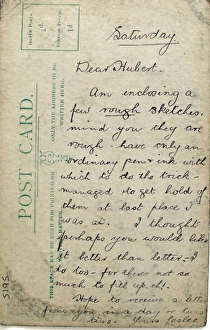 Saturday
Dear Hubert.
Am inclosing a
few rough sketches,
mind you they are
rough - have only an
ordinary pen & ink with
which to do the trick -
managed to get hold of
them at last place I
was at. I thought
perhaps you would like
it better than letter - I
do too - for theres not so
much to fill up eh!.
Hope to receive a letter
from you in a day or two
POST CARD
THE ADDRESS TO BE
WRITTEN HERE.
THIS SPACE MAY BE USED FOR PRINTED OR
WRITTEN MATTER.